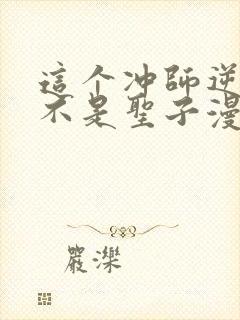 這个冲師逆
不是聖子漫
嚴濼